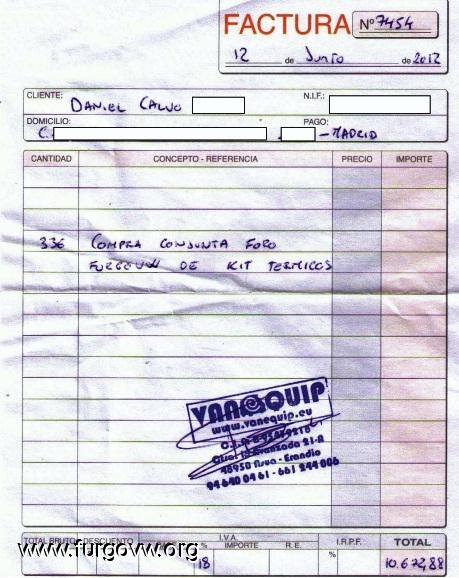 FACTURA Nº 7454
12 de JUNIO de 2012
CLIENTE: DANIEL CALVO N.I.F.:
DOMICILIO: C. PAGO: - MADRID
CANTIDAD CONCEPTO - REFERENCIA PRECIO IMPORTE
336 COMPRA CONJUNTA FORO
FURGOVW DE KIT TERMICOS
VANEQUIP
www.vanequip.eu
48950 - Erandio
94 640 04 61 - 661 244 006
TOTAL BRUTO DESCUENTO I.V.A. I.R.P.F. TOTAL
% IMPORTE R.E. %
18 10.672,88
www.furgovw.org